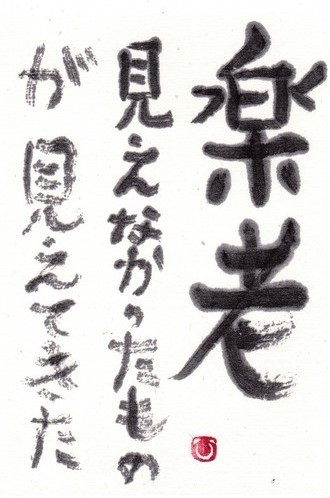 楽老
見えなかったもの
が見えてきた